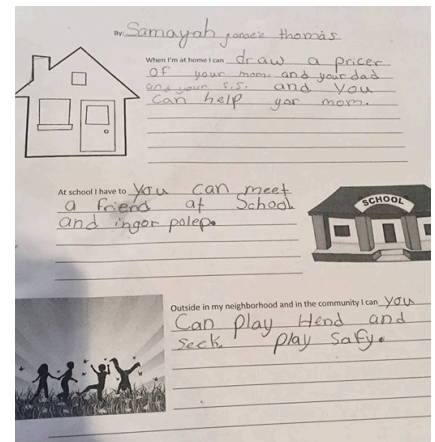 By: Samayah Jonae's thomas
When I'm at home I can draw a pricer
of your mom and your dad
and your s.s. and you
can help yor mom.
At school I have to you can meet
a friend at School
and ingor polep.
SCHOOL
Outside in my neighborhood and in the community I can you
Can play Hend and
Seek. play Safy.